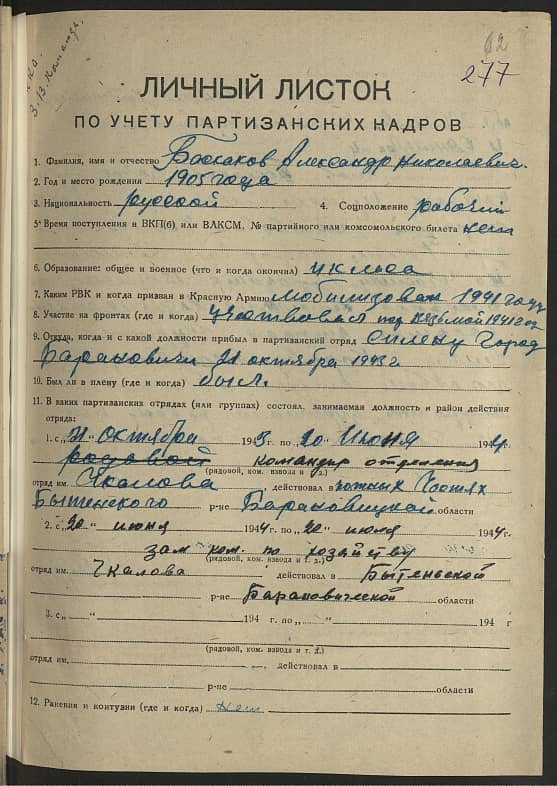 62
277
3. 13. Команд.
ЛИЧНЫЙ ЛИСТОК
ПО УЧЕТУ ПАРТИЗАНСКИХ КАДРОВ
1. Фамилия, имя и отчество Баскаков Александр Николаевич.
2. Год и место рождения 1905 года
3. Национальность русской 4. Соцположение рабочий
5. Время поступления в ВКП(б) или ВЛКСМ, № партийного или комсомольского билета нет
6. Образование: общее и военное (что и когда окончил)
7. Каким РВК и когда призван в Красную Армию мобилизован 1941 году
8. Участие на фронтах (где и когда) участвовал под Вязьмой 1941 год
9. Откуда, когда и с какой должности прибыл в партизанский отряд сплену Город
Барановичи 21 октября 1943 г
10. Был ли в плену (где и когда) был.
11. В каких партизанских отрядах (или группах) состоял, занимаемая должность и район действия
отряда:
1. с „21" октября 1943 г. по „20" Июня 1944.
рядовой командир отделения
(рядовой, ком. взвода и т. д.)
отряд им. Чкалова действовал в южных Частях
Бытенского р-не Барановицкой области
2. с „20" июня 1944 г. по „20" июля 1944 г.
зам ком. по хозяйству
(рядовой, ком. взвода и т. д.)
отряд им. Чкалова действовал в Бытеньской
р-не Барановической области
3. с „ " 194 г. по „ " 194 г
(рядовой, ком. взвода и т. д.)
отряд им. действовал в
р-не области
12. Ранения и контузии (где и когда) нет